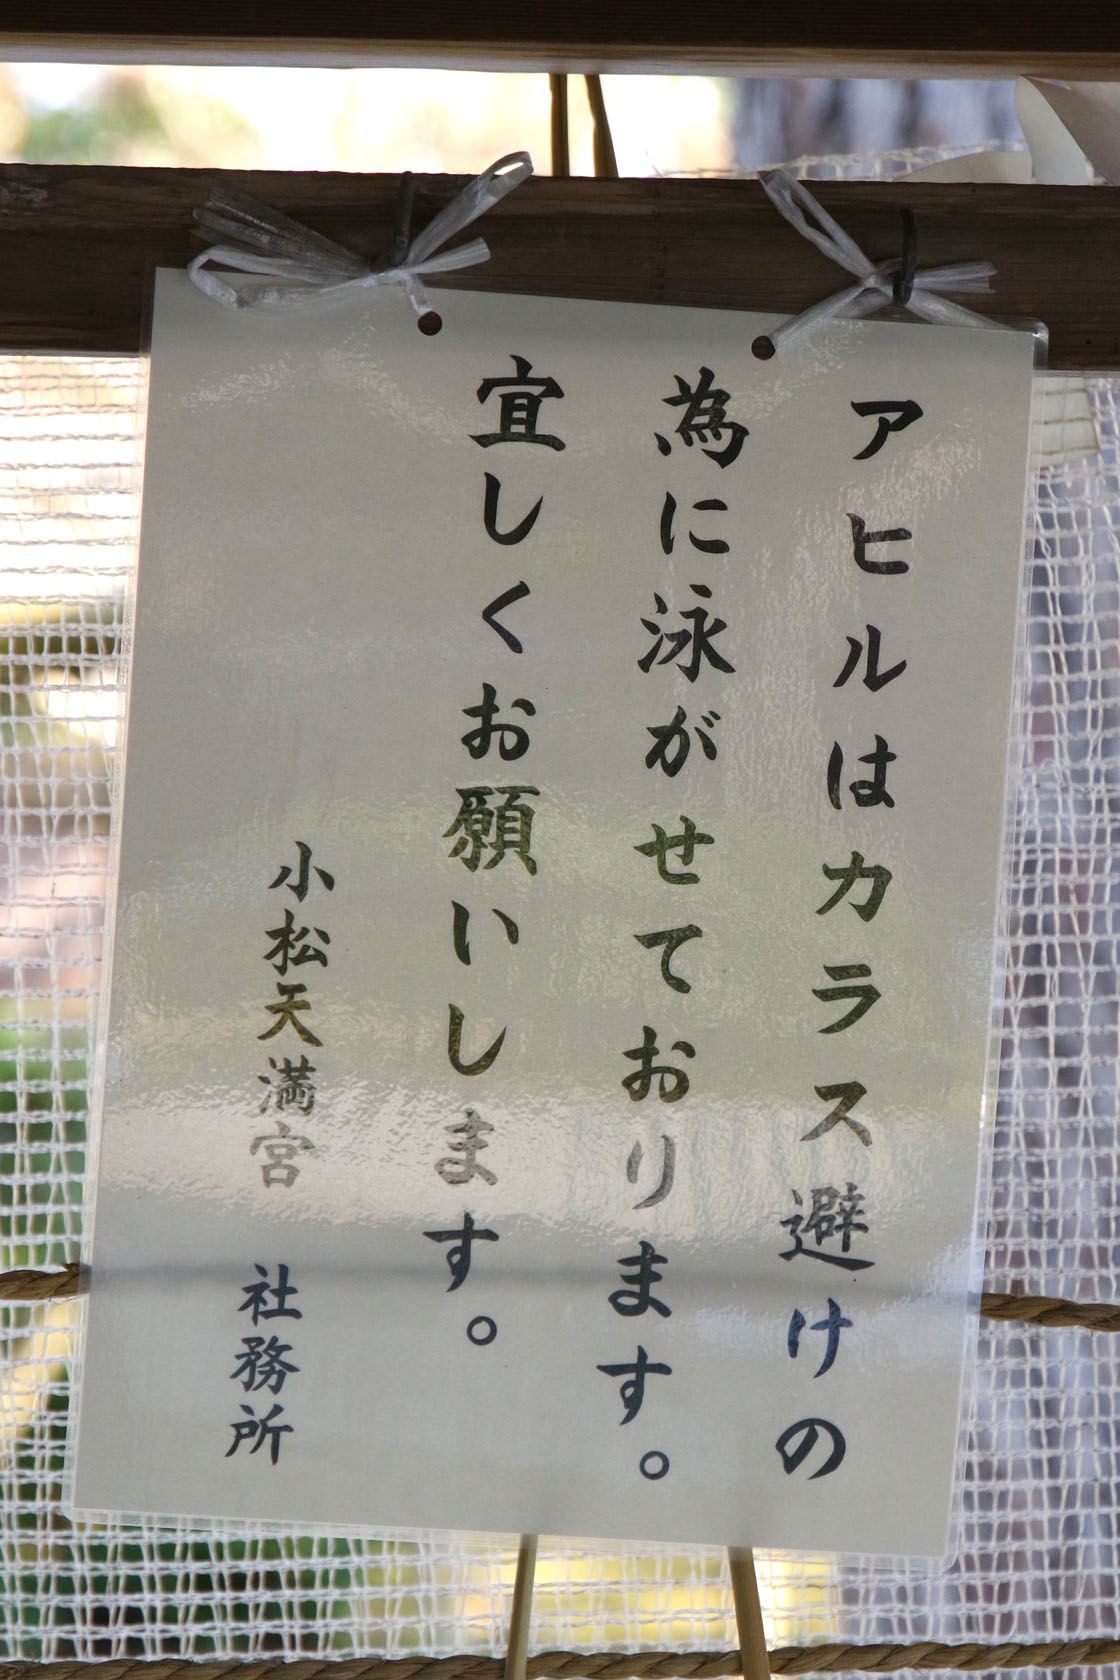 アヒルはカラス避けの
為に泳がせております。
宜しくお願いします。
小松天満宮　社務所